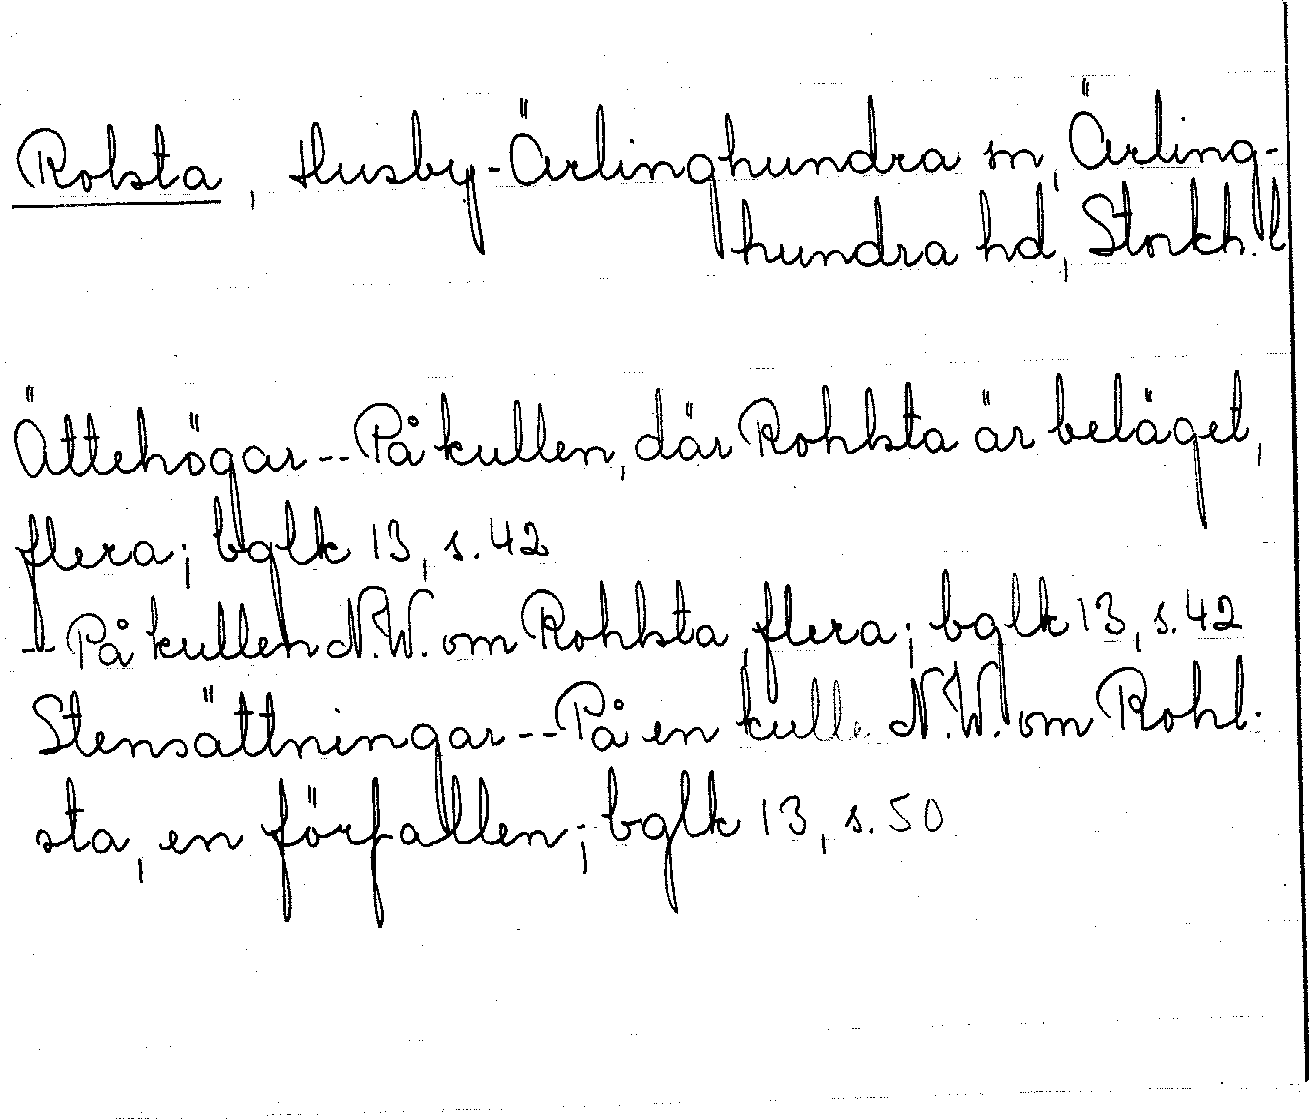 Rolsta, Husby-Ärlinghundra sn, Ärling-
hundra hd, Stockh. l
Ättehögar -- På kullen, där Rohlsta är beläget,
flera; bglk 13, s. 42
-"- På kullen N.W. om Rohlsta, flera; bglk 13, s. 42
Stensättningar -- På en kulle N.W. om Rohl-
sta, en förfallen; bglk 13, s. 50